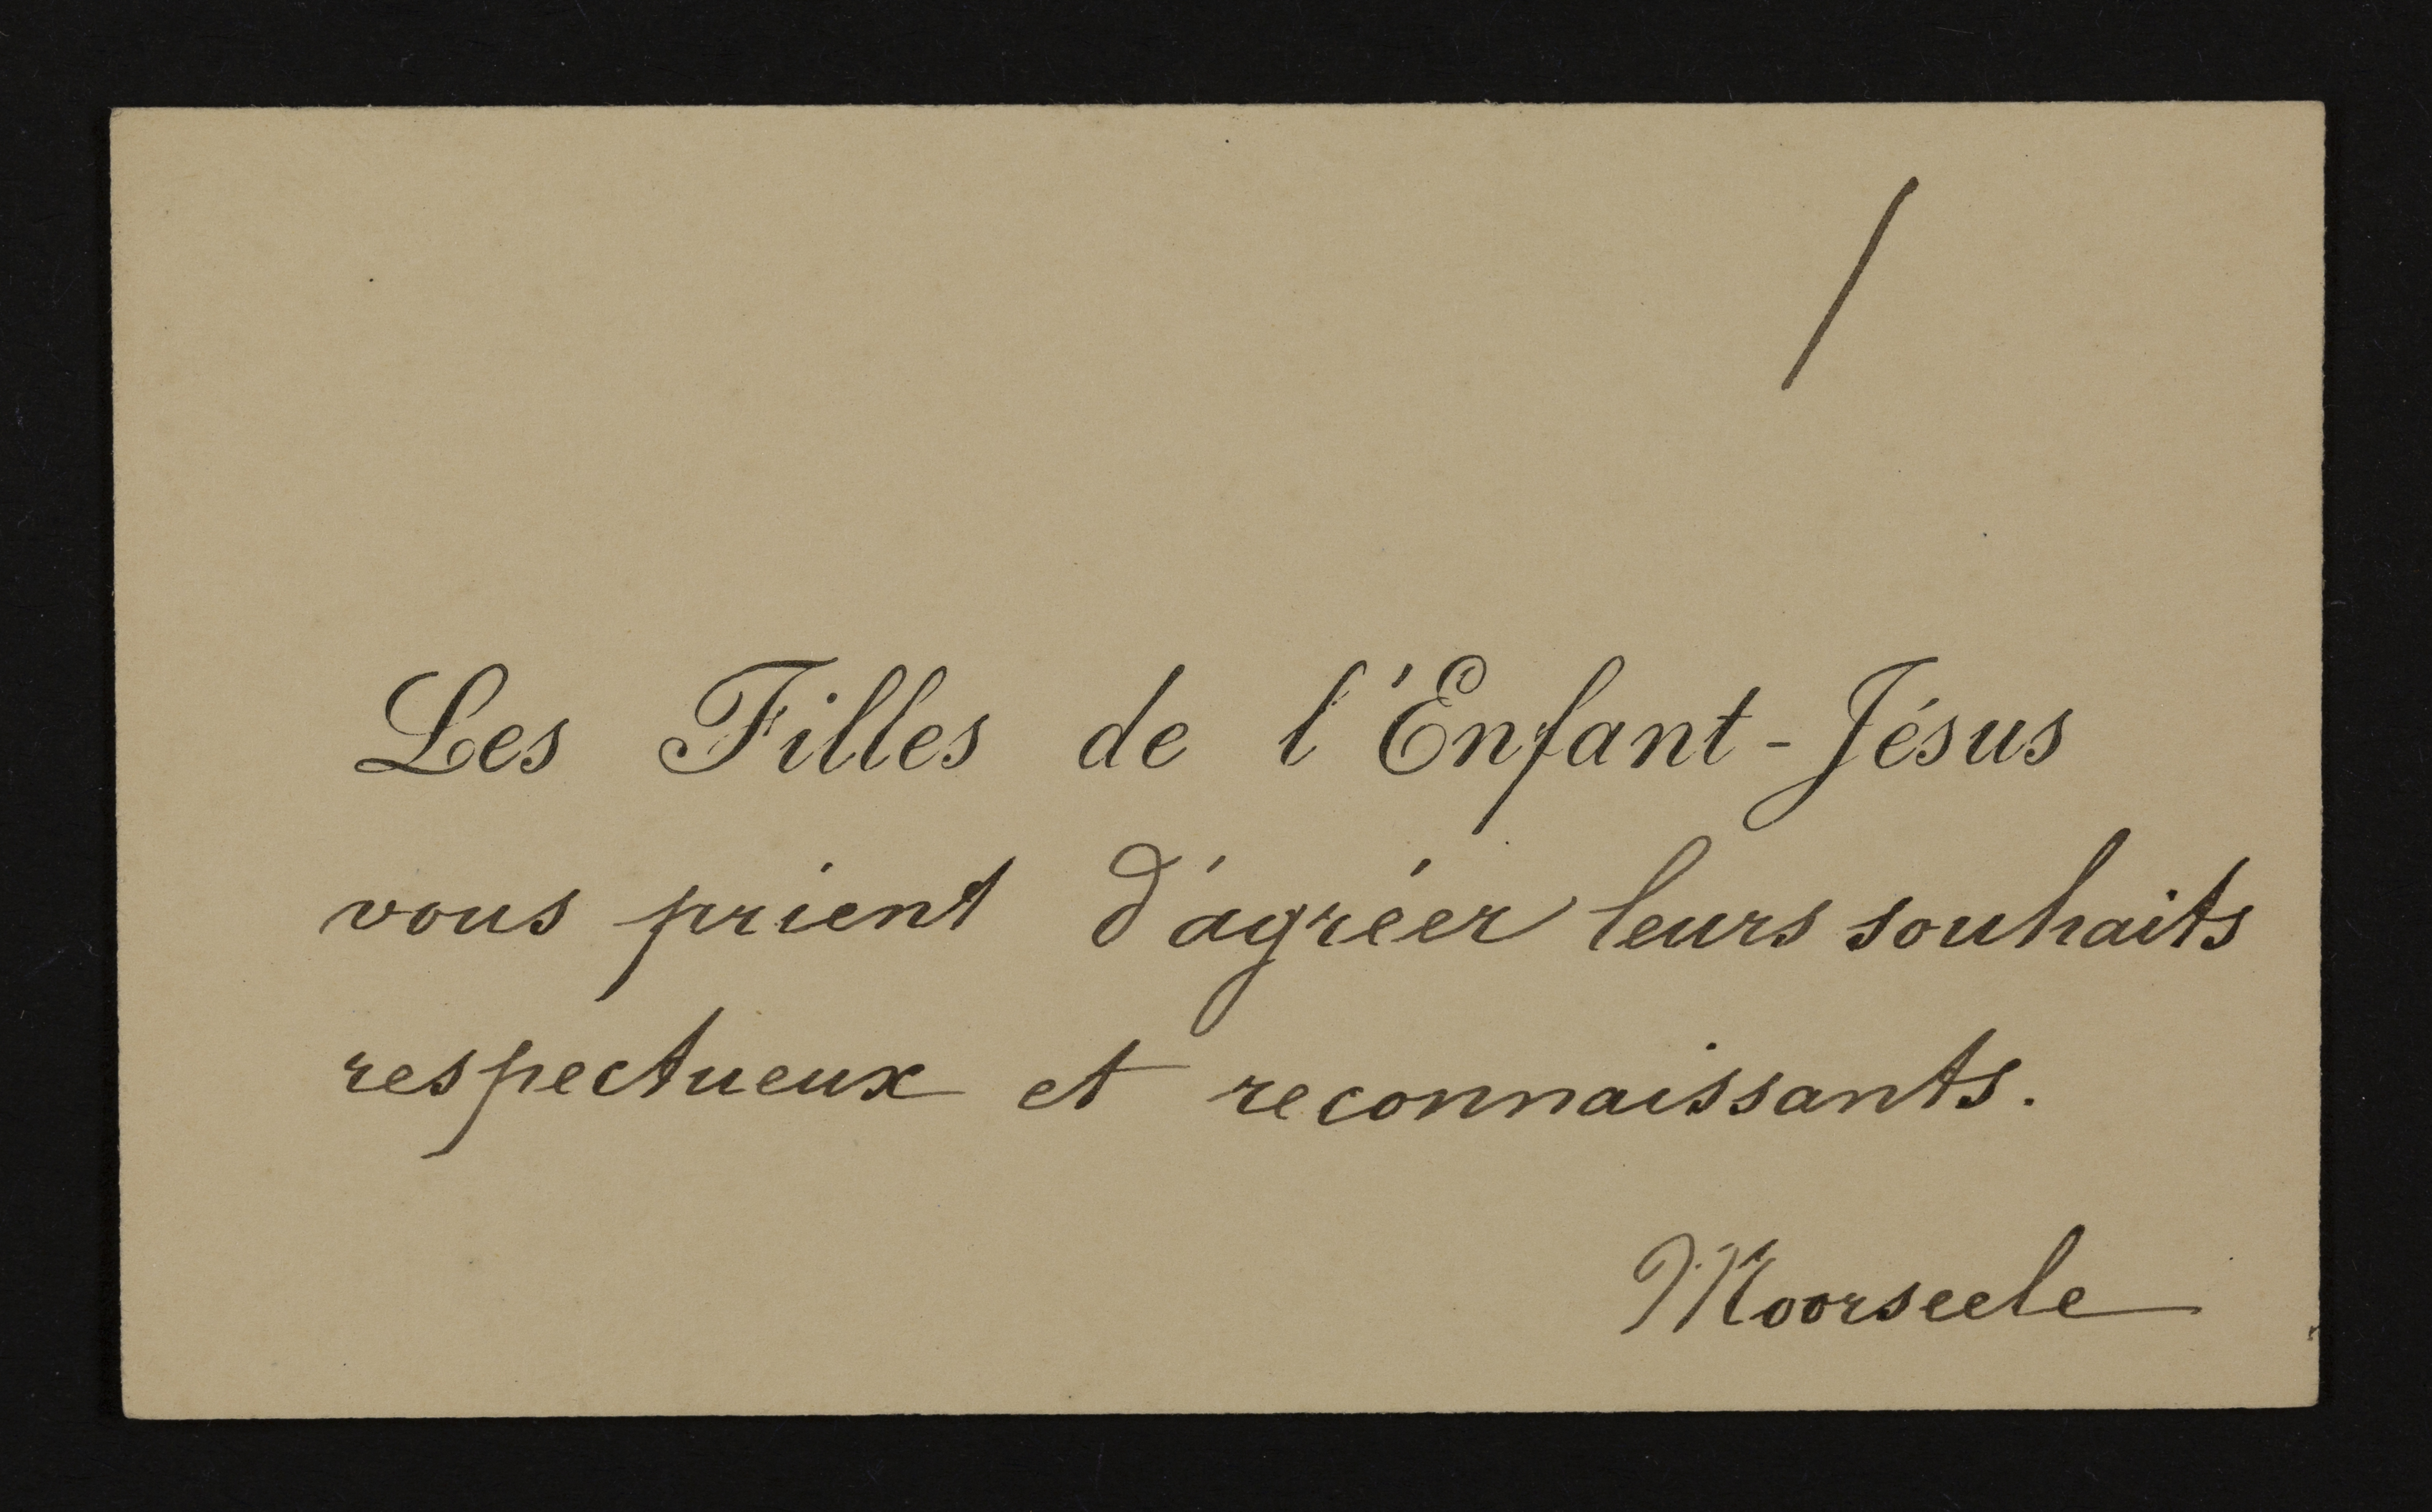 Les Filles de l'Enfant-Jésus
vous prient d'agréer leurs souhaits
respectueux et reconnaissants.
Moorseele